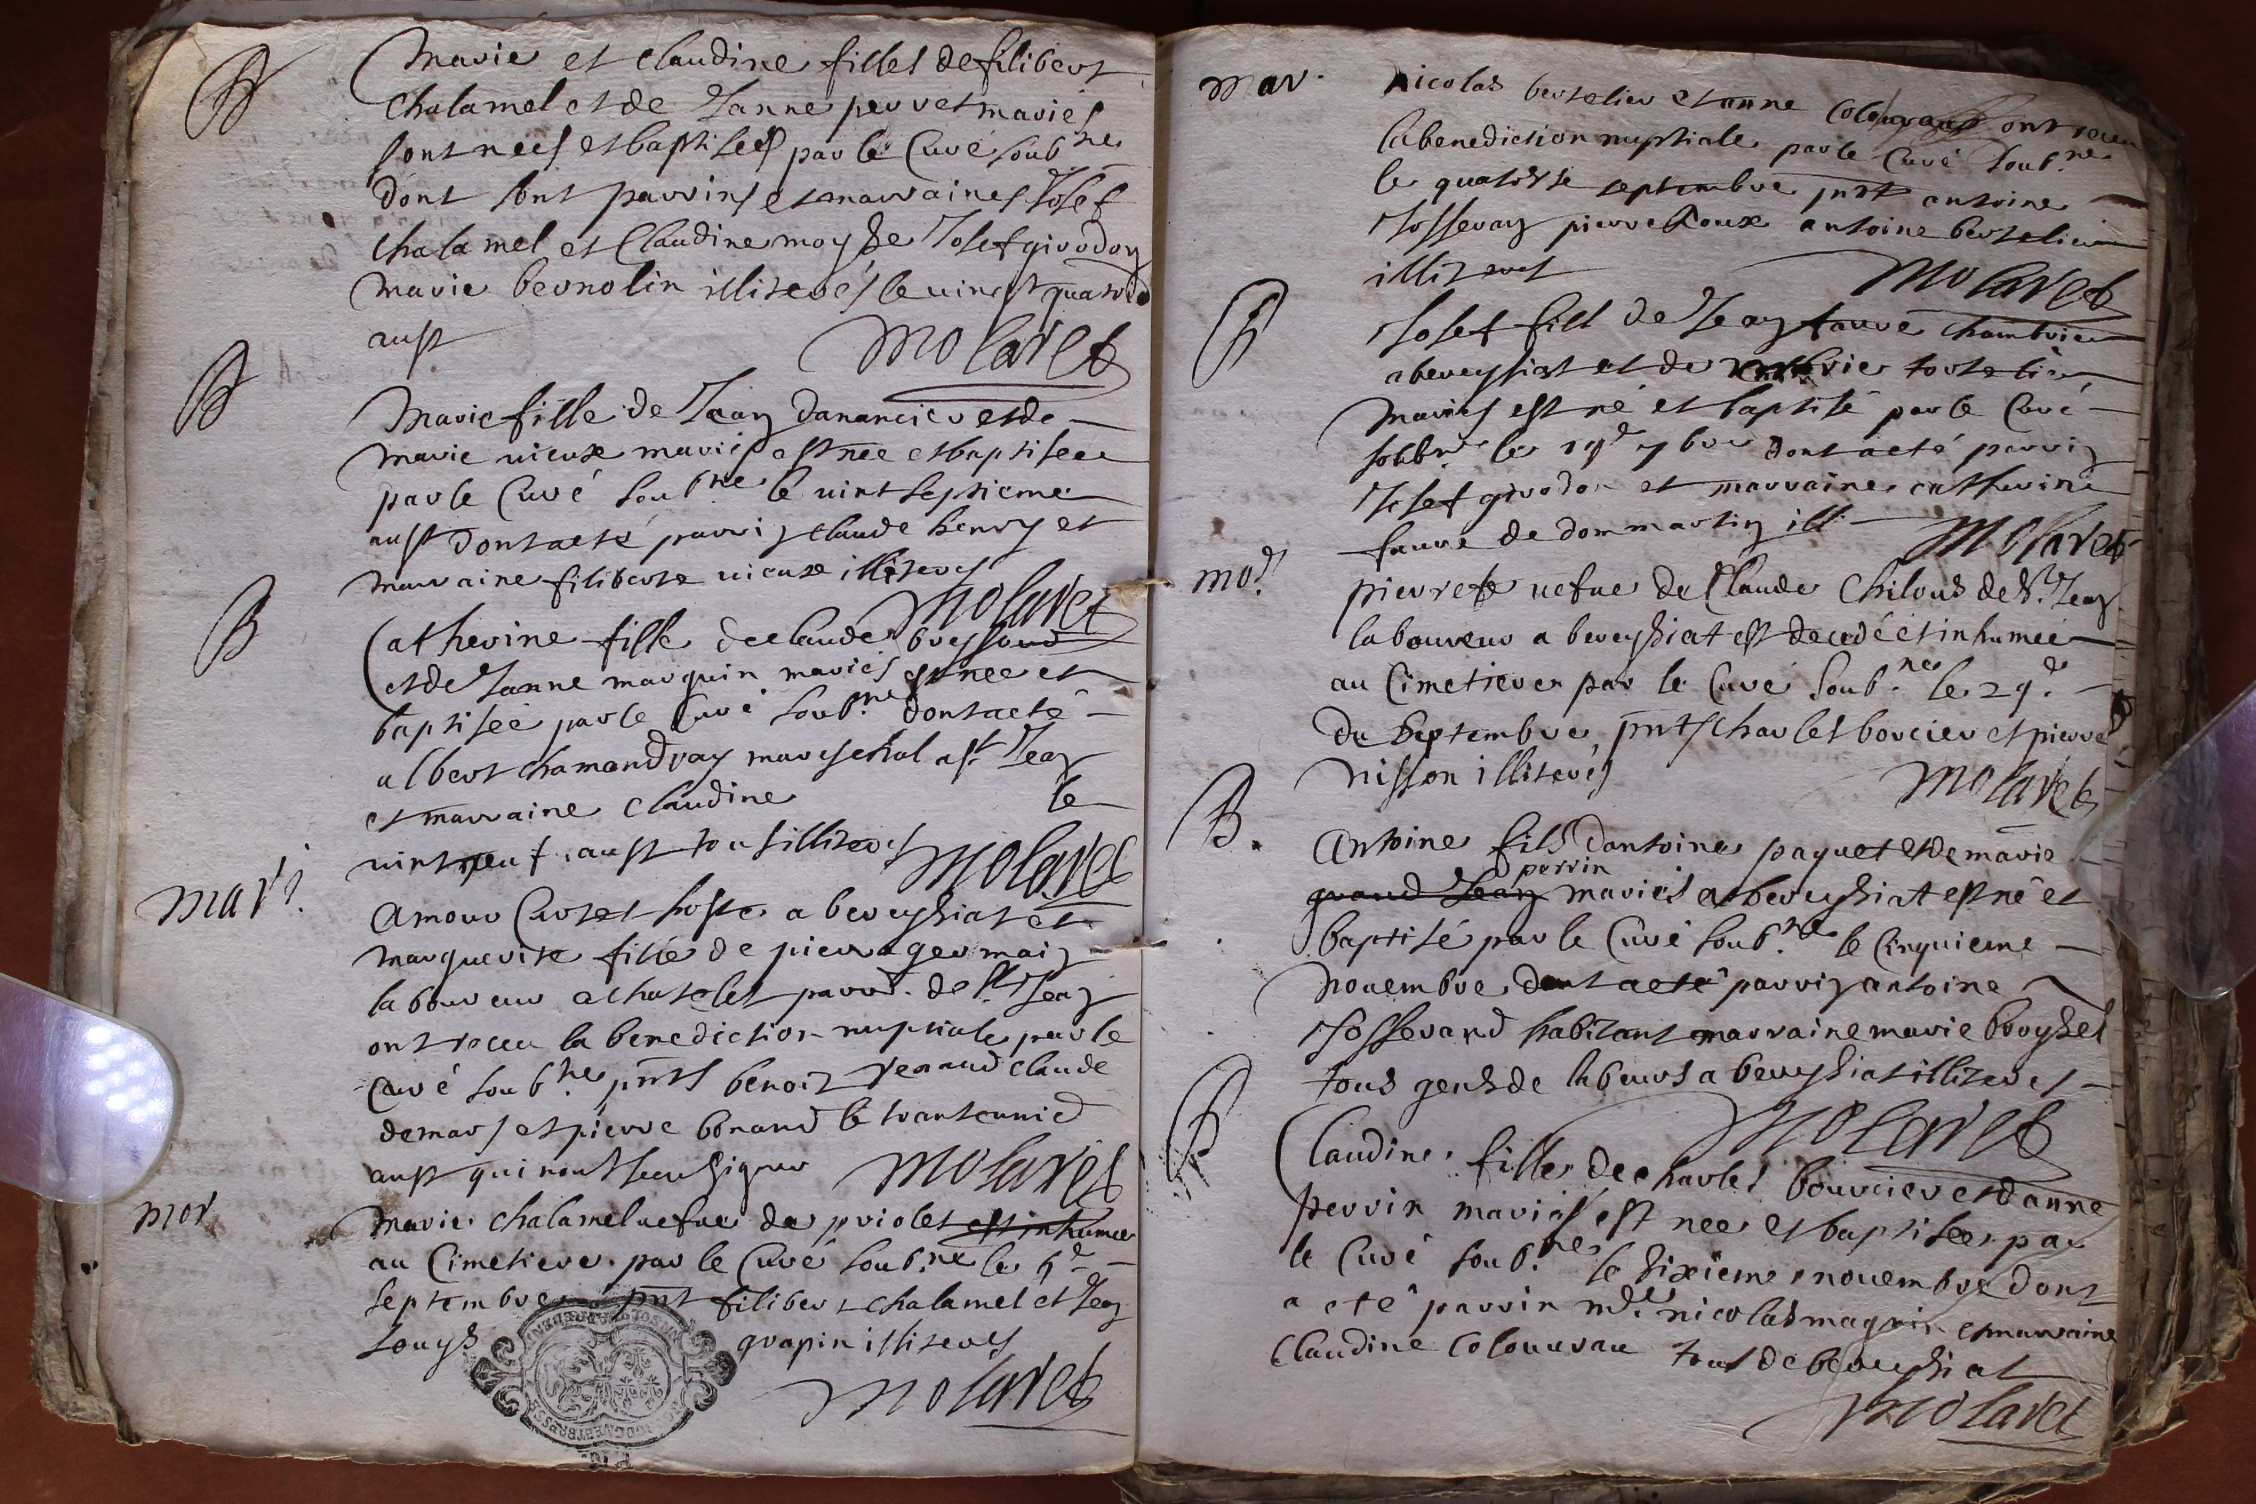 B
Marie et Claudine filles de filibert
Chalamel et de Janne perret mariés
sont neés et baptiseés par le Curé soub.ne
dont sont parrins et marraines Josef
Chalamel et Claudine moyse Josef girodon
Marie bernolin illiterés le vingt quatre
aust
Molaret
B
Marie fille de Jean danancier et de
Marie vieux mariés est née et baptiseé
par le Curé soub.ne le vint septieme
aust dont a eté parrin Claude henry et
marraine filiberte vieux illiterés
Molaret
B
Catherine fille de claude
et de Janne marguin mariés est née et
baptiseé par le Curé soub.ne dont a eté
albert chamandray mareschal a st Jean
et marraine Claudine le
vint neuf aust tous illiterés
Molaret
mar.
Amour Curtet hoste a bereysiat et
Marguerite fille de pierre germain
laboureur a chatelet parr. de st Jean
ont receu la benediction nuptiale par le
Curé soub.ne pnts benoit renaud claude
demars et pierre bonand le trante unie
aust qui n'ont sceu signer
Molaret
mor
Marie chalamel vefue de priolet est inhumeé
au Cimetiere par le Curé soub.ne le 5e
septembre pnt filibert chalamel et Jean
grapin illiterés
Molaret
mar.
Nicolas bertelier et anne Colouvrau ont receu
la benediction nuptiale par le Curé soub.ne
le quatorse septembre pnt antoine
Josseran pierre Roux antoine bertelier
illiterés
Molaret
B
Josef fils de Jean favre chambrier
a bereysiat et de marie tortelier
mariés est né et baptisé par le Curé
soub.ne le 19e 7bre dont a eté parrin
Josef girodon et marraine catherine
favre de dommartin ill
Molaret
mo.
pierrete vefue de Claude Chilous de st Jean
laboureur a bereysiat est decedé et inhumeé
au Cimetiere par le Curé soub.ne le 29e
de Septembre pnts charles borcier et pierre
nisson illiterés
Molaret
B.
Antoine fils dantoine paquet et de marie
perrin
grand Jean mariés a bereysiat est né et
baptisé par le Curé soub.ne le Cinquieme
Nouembre dont a eté parrin antoine
Josserand habitant marraine marie broyset
tous gens de labeurs a bereysiat illiterés
Molaret
B
Claudine fille de charles bourcier et danne
perrin mariés est nee et baptiseé par
le Curé soub.ne le sixieme nouembre dont
a eté parrin mre nicolas maguin et marraine
Claudine Colouvrau tous de bereysiat
Molaret